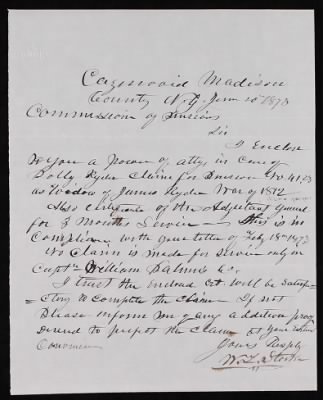 Cazenovia Madison
County N.Y. June 10th 1873
Commissioner of Pensions
Sir
I Enclose
to you a Power of atty, in case of
Polly Ryder Claim for Pension
as Widow of James Ryder War of 1812
Also Certificate of the Adjutant General
for 3 Months Service - This is in
Compliance with your letter of Feby 18th 1873
No Claim is made for Service only in
Capt William
I trust the inclosed will be Satisfac-
=ctory to Complete the Claim - If not
Please inform me of any addition proof
to perfect the Claim at your Earliest
Yours Resply